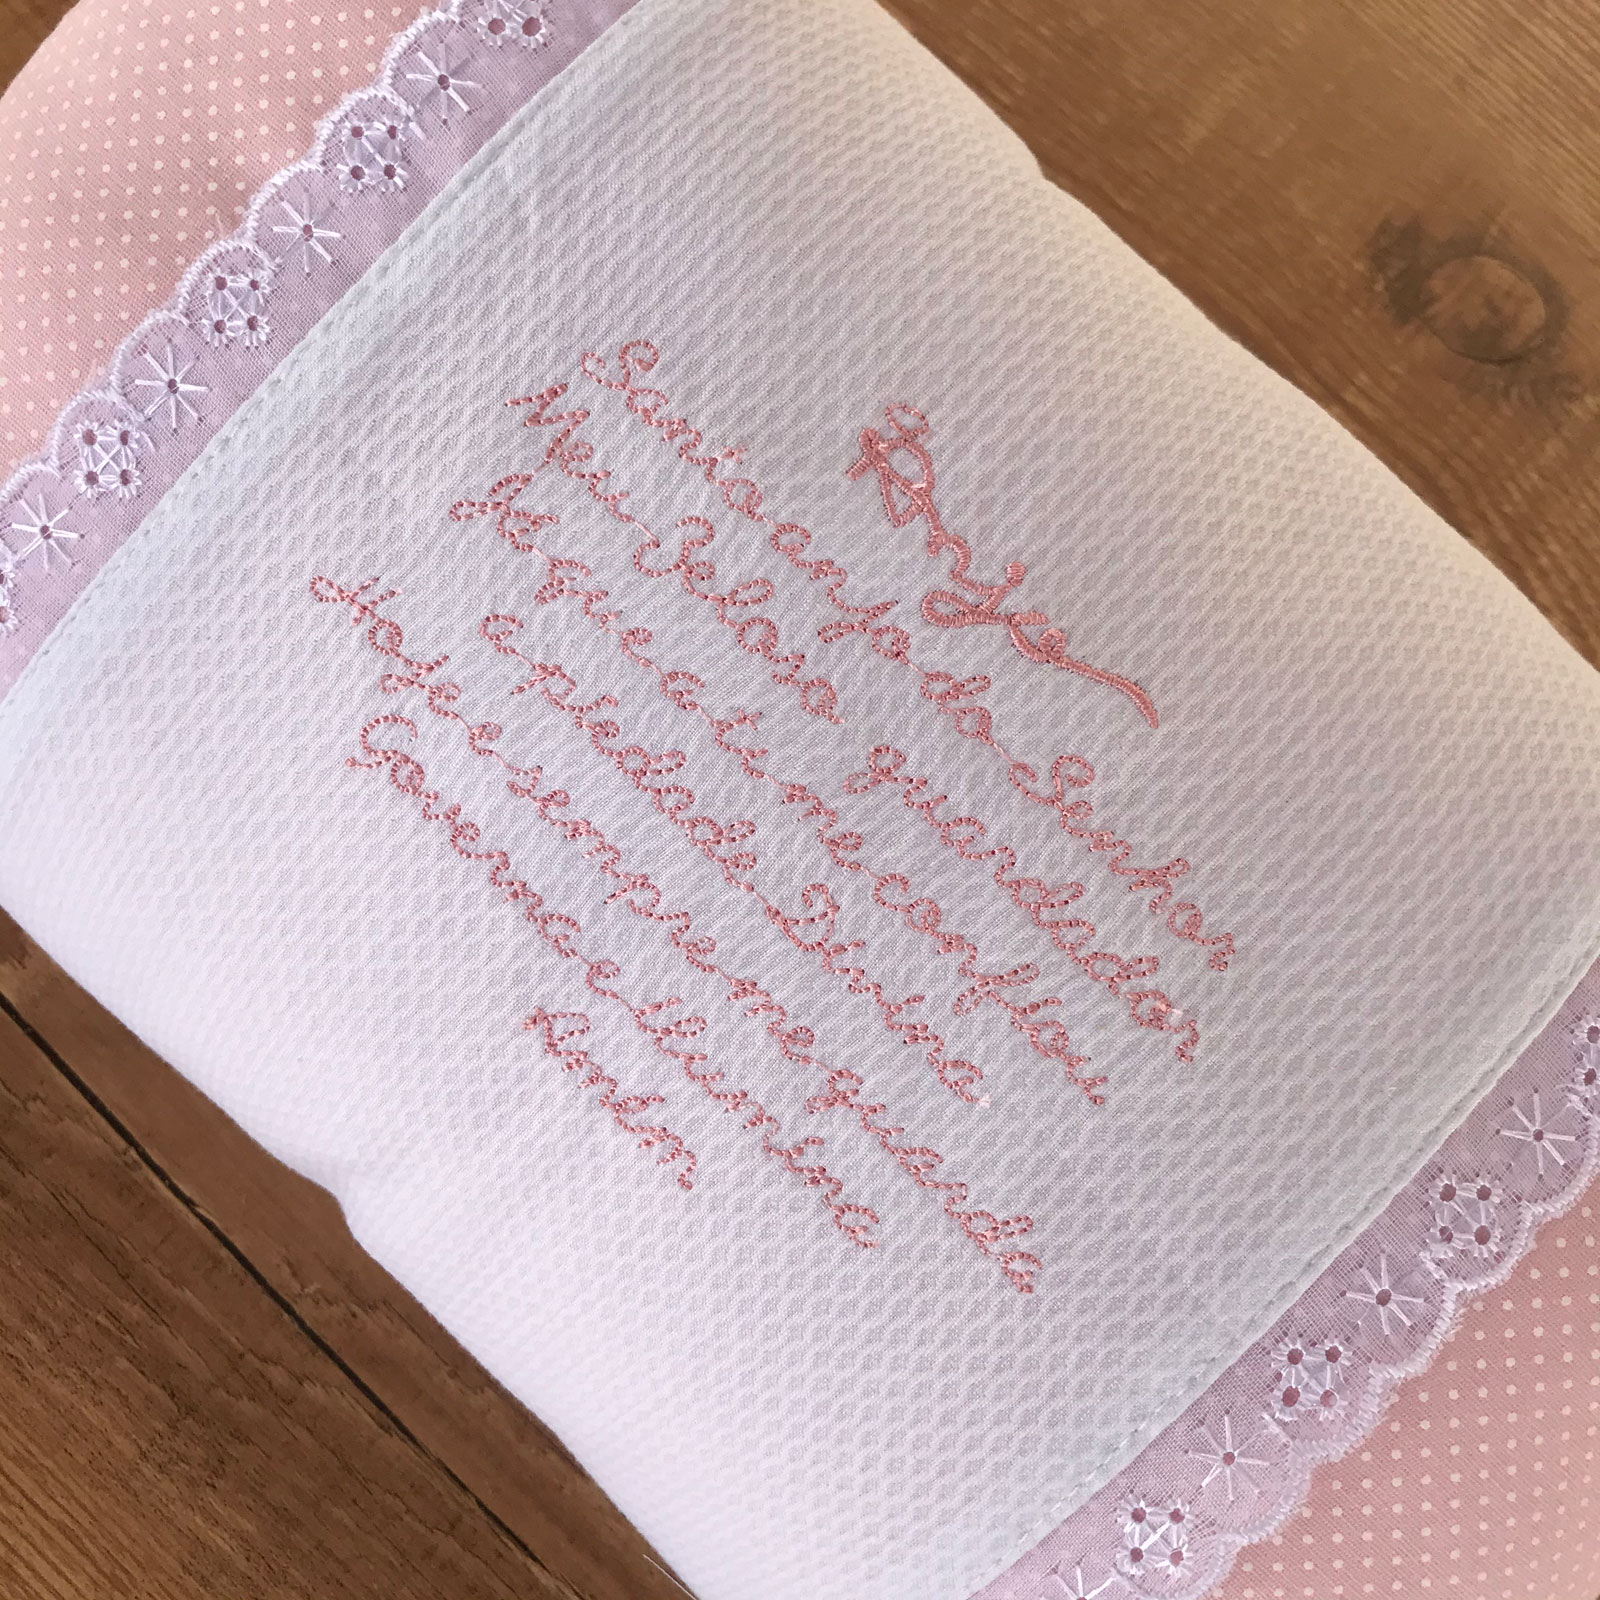 Anjo
Santo anjo do Senhor
Meu Zeloso guardador
Já que a ti me confiou
a piedade Divina
Hoje e sempre me guarda
Governa e Ilumina
Amém